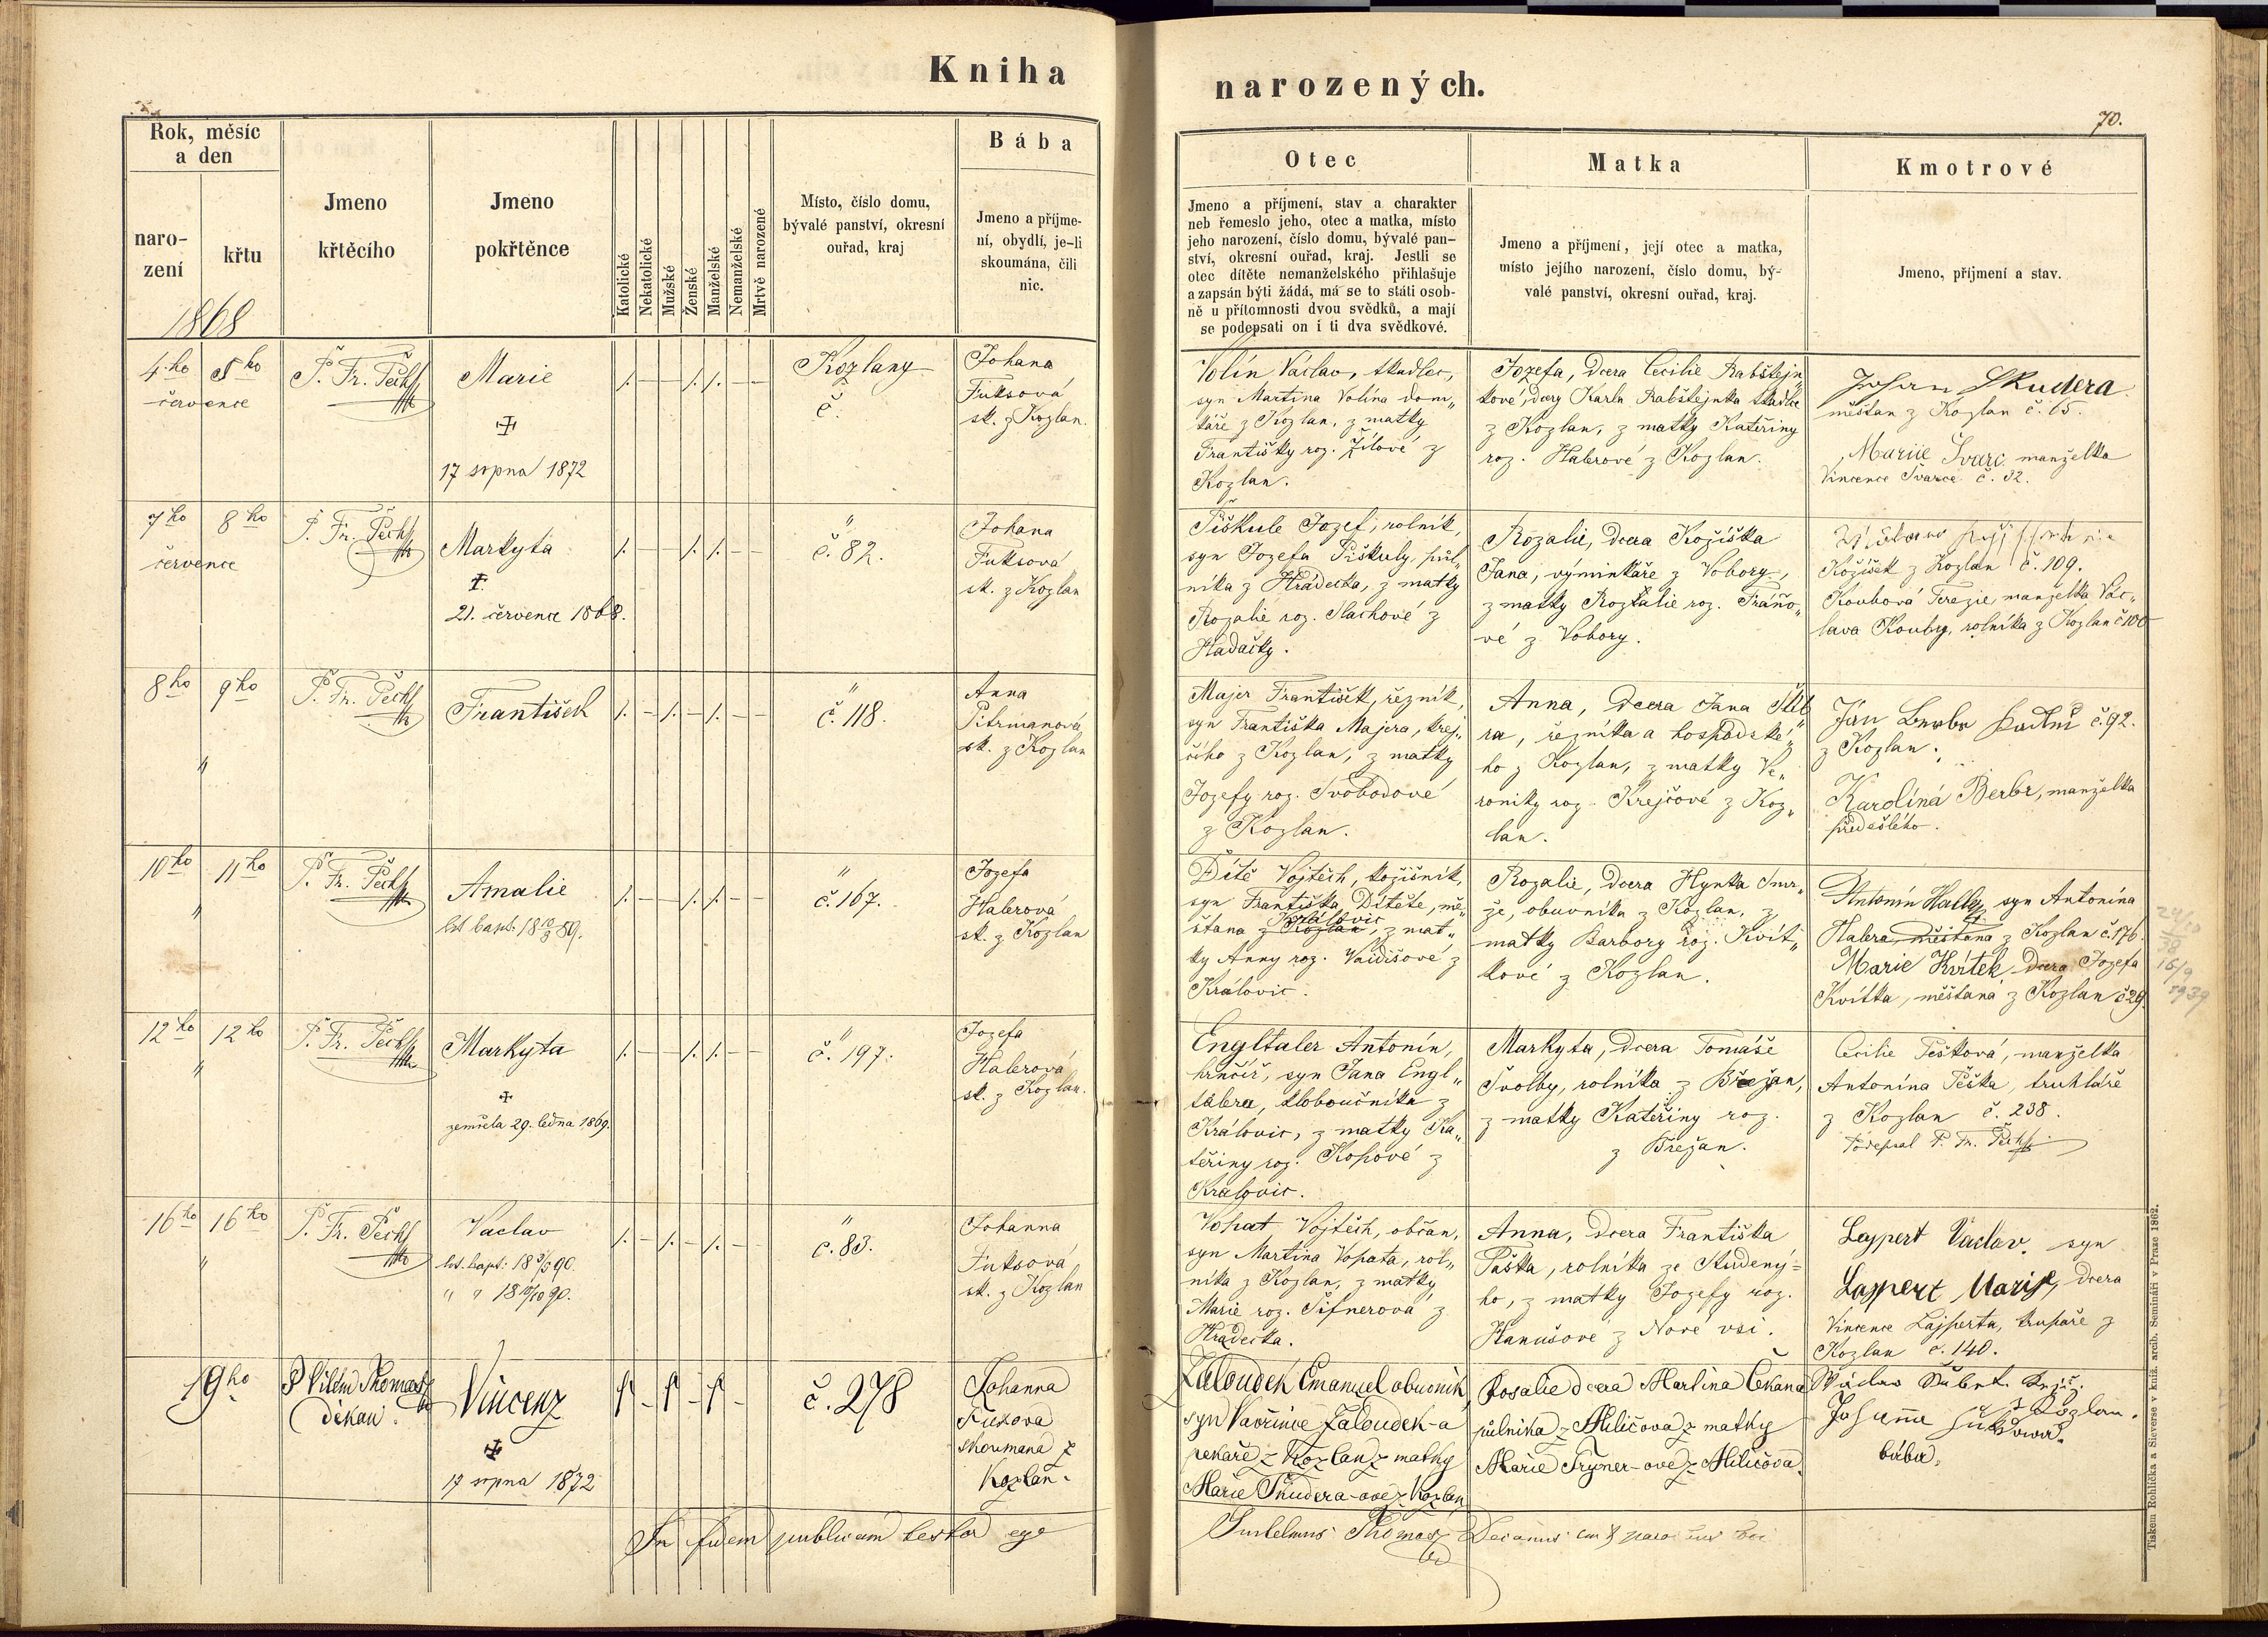 Kniha narozených.
70.
Rok, měsíc
a den
naro-
zení
křtu
1868
Jmeno
křtěcího
Jmeno
pokřtěnce
Katolické
Nekatolické
Mužské
Ženské
Manželské
Nemanželské
Mrtvě narozené
Místo, číslo domu,
bývalé panství, okresní
ouřad, kraj
Bába
Jmeno a příjme-
ní, obydlí, je-li
skoumána, čili
nic.
Otec
Jmeno a příjmení, stav a charakter
neb řemeslo jeho, otec a matka, místo
jeho narození, číslo domu, bývalé pan-
ství, okresní ouřad, kraj. Jestli se
otec dítěte nemanželského přihlašuje
a zapsán býti žádá, má se to státi osob-
ně u přítomnosti dvou svědků, a mají
se podepsati on i ti dva svědkové.
Matka
Jmeno a příjmení, její otec a matka,
místo jejího narození, číslo domu, bý-
valé panství, okresní ouřad, kraj.
Kmotrové
Jmeno, příjmení a stav.
4ho 5ho
července
P. Fr. Pech
Marie
17 srpna 1872
Kozlany
č.
Johana
Fuksová
sk. z Kozlan.
Volín Václav, tkadlec,
syn Martina Volína dom„
káře z Kozlan, z matky
Františky roz. Žílové z
Kozlan.
Jozefa, dcera Cecilie Rabštejn„
kové, dcery Karla Rabštejnka tkadlce
z Kozlan, z matky Kateřiny
roz. Halerové z Kozlan.
Johan Skudera
měšťan z Kozlan č. 65.
Mariie Švarc manželka
Vincence Švarce č. 32.
7ho 8ho
července
P. Fr. Pech
Markyta
21. července 1868.
" č. 82.
Johana
Fuksová
sk. z Kozlan
Piškule Jozef, rolník,
syn Jozefa Piškuly, půl„
níka z Hrádecka, z matky
Rozalie roz. Slachové z
Hadačky.
Rozalie, dcera Kožíška
Jana, výminkáře z Vobory,
z matky Rozalie roz. Fráňo„
vé z Vobory.
Kožíšek z Kozlan č. 109.
Koubová Terezie, manželka Vác„
lava Kouby, rolníka z Kozlan č 100
8ho 9ho
"
P. Fr. Pech
František
" č. 118.
Anna
Pitrmanová
sk. z Kozlan
Majer František, řezník,
syn Františka Majera, krej„
čího z Kozlan, z matky
Jozefy roz. Svobodové
z Kozlan.
Anna, dcera Jana
ra, řezníka a hospodské„
ho z Kozlan, z matky Ve„
roniky roz. Krejčové z Koz„
lan.
Ján Berbr č. 92.
z Kozlan.
Karolíná Berbr, manželka
předešlého.
10ho 11ho
"
P. Fr. Pech
Amalie
" č. 167.
Jozefa
Halerová
sk. z Kozlan
Dítě Vojtěch, kožišník,
syn Františka Dítěte, mě„
šťana z Kozlan Královic, z mat„
ky Anny roz. Vaidišové z
Královic.
Rozalie, dcera Hynka Smr„
že, obuvníka z Kozlan, z
matky Barbory roz. Kvít„
kové z Kozlan.
Antonín Haller syn Antonína
Halera, měšťana z Kozlan č. 176
Marie Kvítek dcera Jozefa
Kvítka, měšťana z Kozlan č 29.
16/9
1939
12ho 12ho
"
P. Fr. Pech
Markyta
zemřela 29. ledna 1869.
" č. 197.
Jozefa
Halerová
sk. z Kozlan.
Engltaler Antonín,
hrnčíř, syn Jana Engl„
talera, kloboučníka z
Královic, z matky Ka„
teřiny roz. Kopové z
Královic.
Markyta, dcera Tomáše
Svolby, rolníka z Břežan,
z matky Kateřiny roz.
z Břežan.
Cecilie Pešková, manželka
Antonína Peška, truhláře
z Kozlan č. 238.
Podepsal P. Fr. Pech
16ho 16ho
"
P. Fr. Pech
Vaclav
" č. 83.
Johanna
Fuksová
sk. z Kozlan
Vopat Vojtěch, občan,
syn Martina Vopata, rol„
níka z Kozlan, z matky
Marie roz. Šifnerová z
Hrádecka.
Anna, dcera Františka
Paška, rolníka ze Studený=
ho, z matky Jozefy roz.
Hanušové z Nové vsi.
Lajpert Vaclav, syn
Lajpert Marie, dcera
Vincence Lajperta, krupaře z
Kozlan č. 140.
19ho
P Vilém Thomas
děkan.
Vincenz
17 srpna 1872
č. 278
Johanna
Fuxova
skoumana z
Kozlan.
Zaloudek Emanuel obuvník
syn Vavřince Zaloudek-a
pekaře z Kozlan z matky
Marie Skudera-ové z Kozlan
Rosalie dcera Martina Čekana
půlníka z Miličova z matky
Marie Tryner-ové z Miličova.
Václav
z Kozlan.
Johanna Fuksova.
bába.
In fidem publicam testor ego
Guilelmus Thomas Decanus
Tiskem Rohlíčka a Sieverse v kníž. arcib. Semináři v Praze 1862.